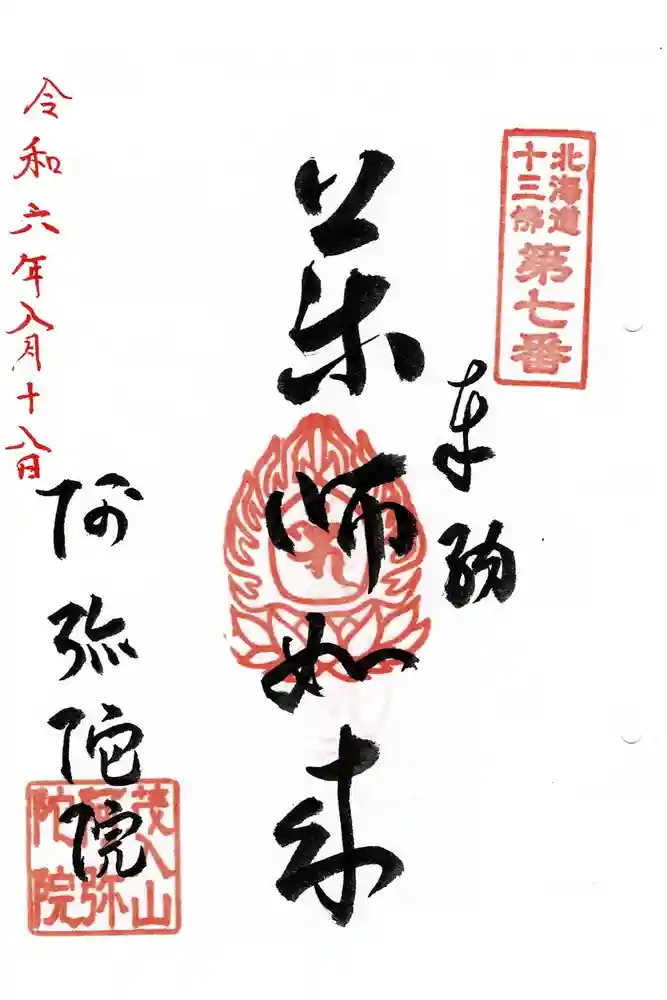 北海道
十三佛
第七番
奉納
薬師如来
阿弥陀院
令和六年八月十八日
茂入山
阿弥
陀院